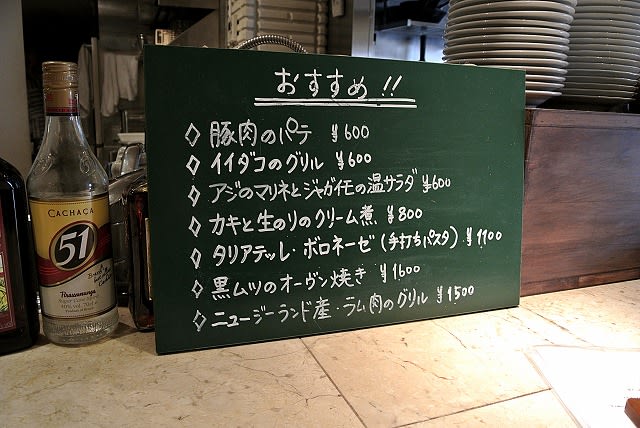 おすすめ!!
◇豚肉のパテ ¥600
◇イイダコのグリル ¥600
◇アジのマリネとジャガイモの温サラダ ¥600
◇カキと生のりのクリーム煮 ¥800
◇タリアテッレ・ボロネーゼ(手打ちパスタ) ¥1100
◇黒ムツのオーヴン焼き ¥1600
◇ニュージーランド産・ラム肉のグリル ¥1500
CACHAÇA
51
Pirassununga